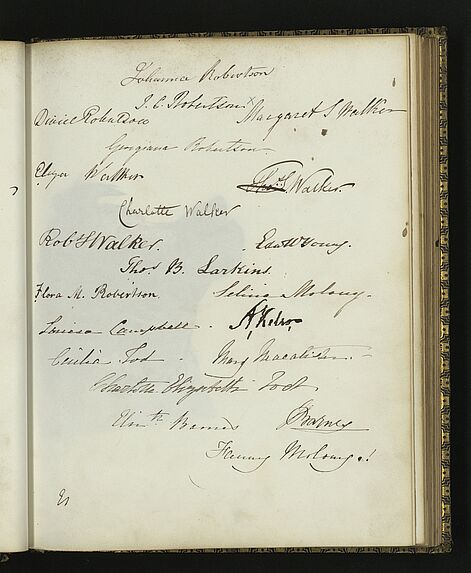 Johanna Robertson
J. C. Robertson
Daniel Robertson Margaret S Walker
Georgiana Robertson
Eliza Walker Thos S Walker.
Charlotte Walker
Robt S Walker. Edwd Young.
Thos B. Larkins
Flora M. Robertson. Selina Molony.
Louisa Campbell. A, Kelso,
Cecilia Tod Mary Macalister
Charlotte Elizabeth Tod
Barnes
Fanny Molony.!